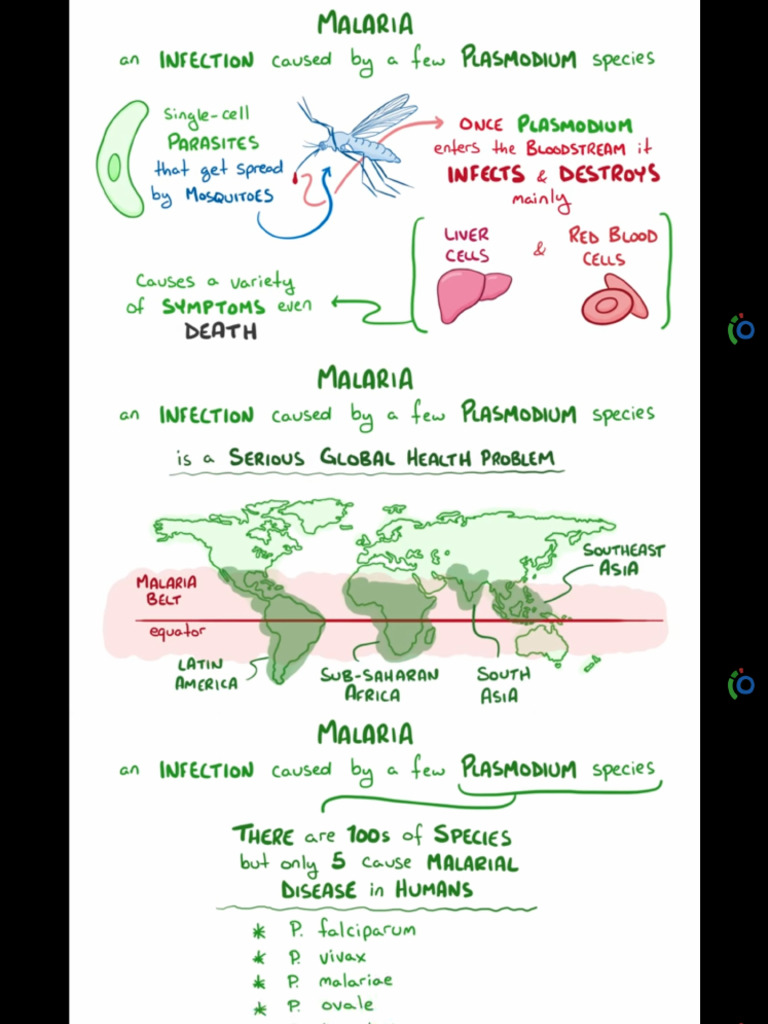 MALARIA
an INFECTION caused by a few PLASMODIUM species
Single-cell
PARASITES
that get spread
by MOSQUITOES
ONCE PLASMODIUM
enters the BLOODSTREAM it
INFECTS & DESTROYS
mainly
LIVER
CELLS
&
RED BLOOD
CELLS
Causes a variety
of SYMPTOMS even
DEATH
MALARIA
an INFECTION caused by a few PLASMODIUM species
is a SERIOUS GLOBAL HEALTH PROBLEM
SOUTHEAST
ASIA
MALARIA
BELT
equator
LATIN
AMERICA
SUB-SAHARAN
AFRICA
SOUTH
ASIA
MALARIA
an INFECTION caused by a few PLASMODIUM species
THERE are 100s of SPECIES
but only 5 cause MALARIAL
DISEASE in HUMANS
* P. falciparum
* P. vivax
* P. malariae
* P. ovale